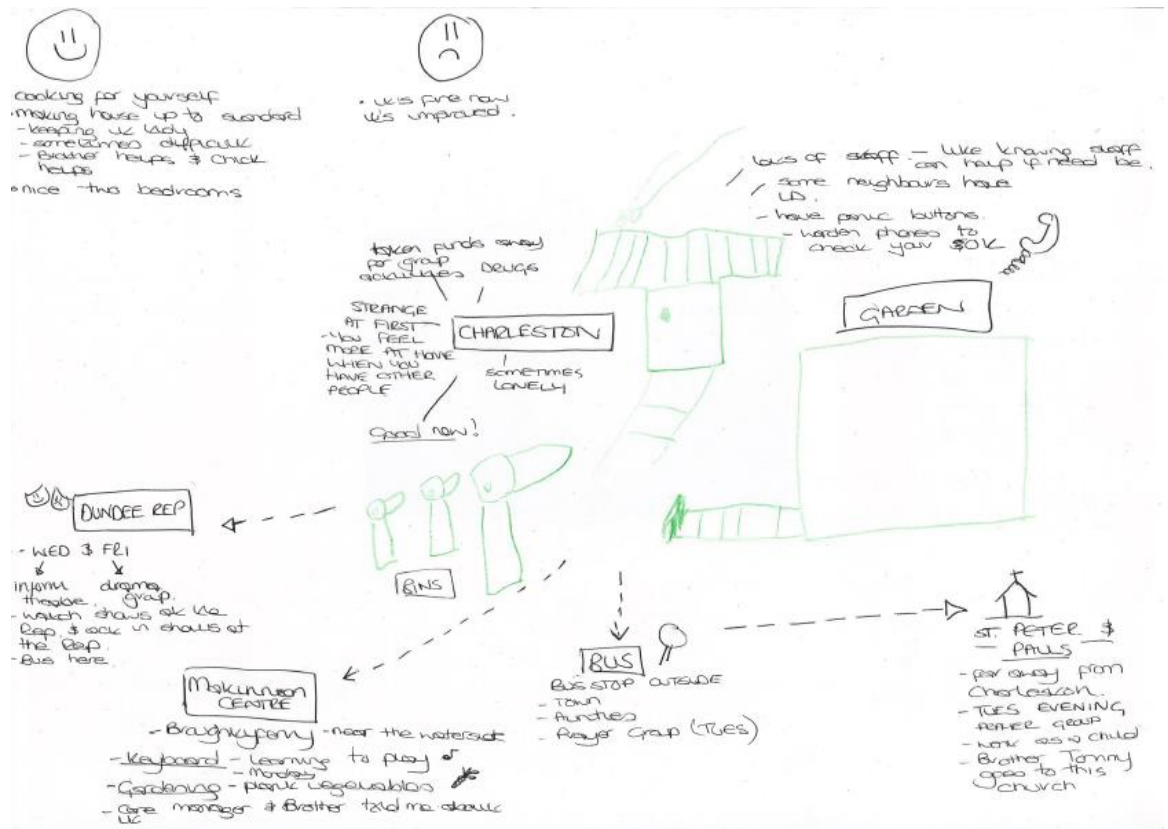 cooking for yourself
· making house up to standard
- keeping it tidy
- sometimes difficult
- Brother helps & Chick
helps
· nice - two bedrooms
· it's fine now
it's improved.
lots of staff - like knowing staff
can help if need be.
some neighbours have
LD.
- have panic buttons.
- warden phones to
check your OK
GARDEN
taken funds away
for group
activities
DRUGS
STRANGE
AT FIRST
- YOU FEEL
MORE AT HOME
WHEN YOU
HAVE OTHER
PEOPLE
CHARLESTON
SOMETIMES
LONELY
Good now!
DUNDEE REP
- WED & FRI
inform drama
theatre. group.
- watch shows at the
Rep & act in shows at
the Rep.
- Bus here.
BINS
Makinnon
CENTRE
- Broughtyferry - near the waterside
- Keyboard - learning to play
- Monday
- Gardening - plant vegetables
- Care manager & Brother told me about
it
BUS
BUS STOP OUTSIDE
- TOWN
- Aunties
- Prayer Group (TUES)
ST. PETER &
PAULS
- far away from
Charleston.
- TUES EVENING
PRAYER GROUP
- went as a child
- Brother Tommy
goes to this
church